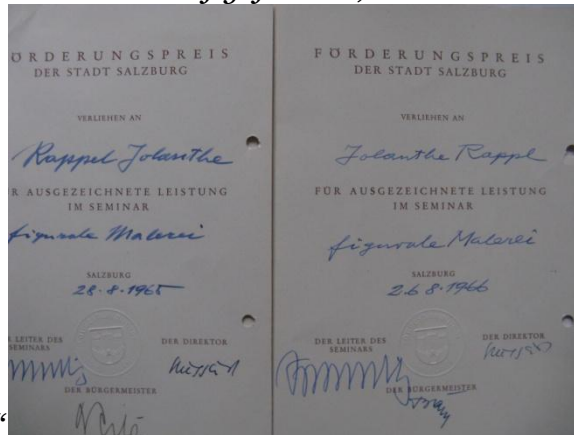 ÖRDERUNGSPREIS
DER STADT SALZBURG
VERLIEHEN AN
Rappel Jolanthe
R AUSGEZEICHNETE LEISTUNG
IM SEMINAR
figurale Malerei
SALZBURG
28.8.1965
ER LEITER DES
SEMINARS
DER DIREKTOR
DER BÜRGERMEISTER
FÖRDERUNGSPREIS
DER STADT SALZBURG
VERLIEHEN AN
Jolanthe Rappl
FÜR AUSGEZEICHNETE LEISTUNG
IM SEMINAR
figurale Malerei
SALZBURG
26 8.1966
DER LEITER DES
SEMINARS
DER DIREKTOR
DER BÜRGERMEISTER
“